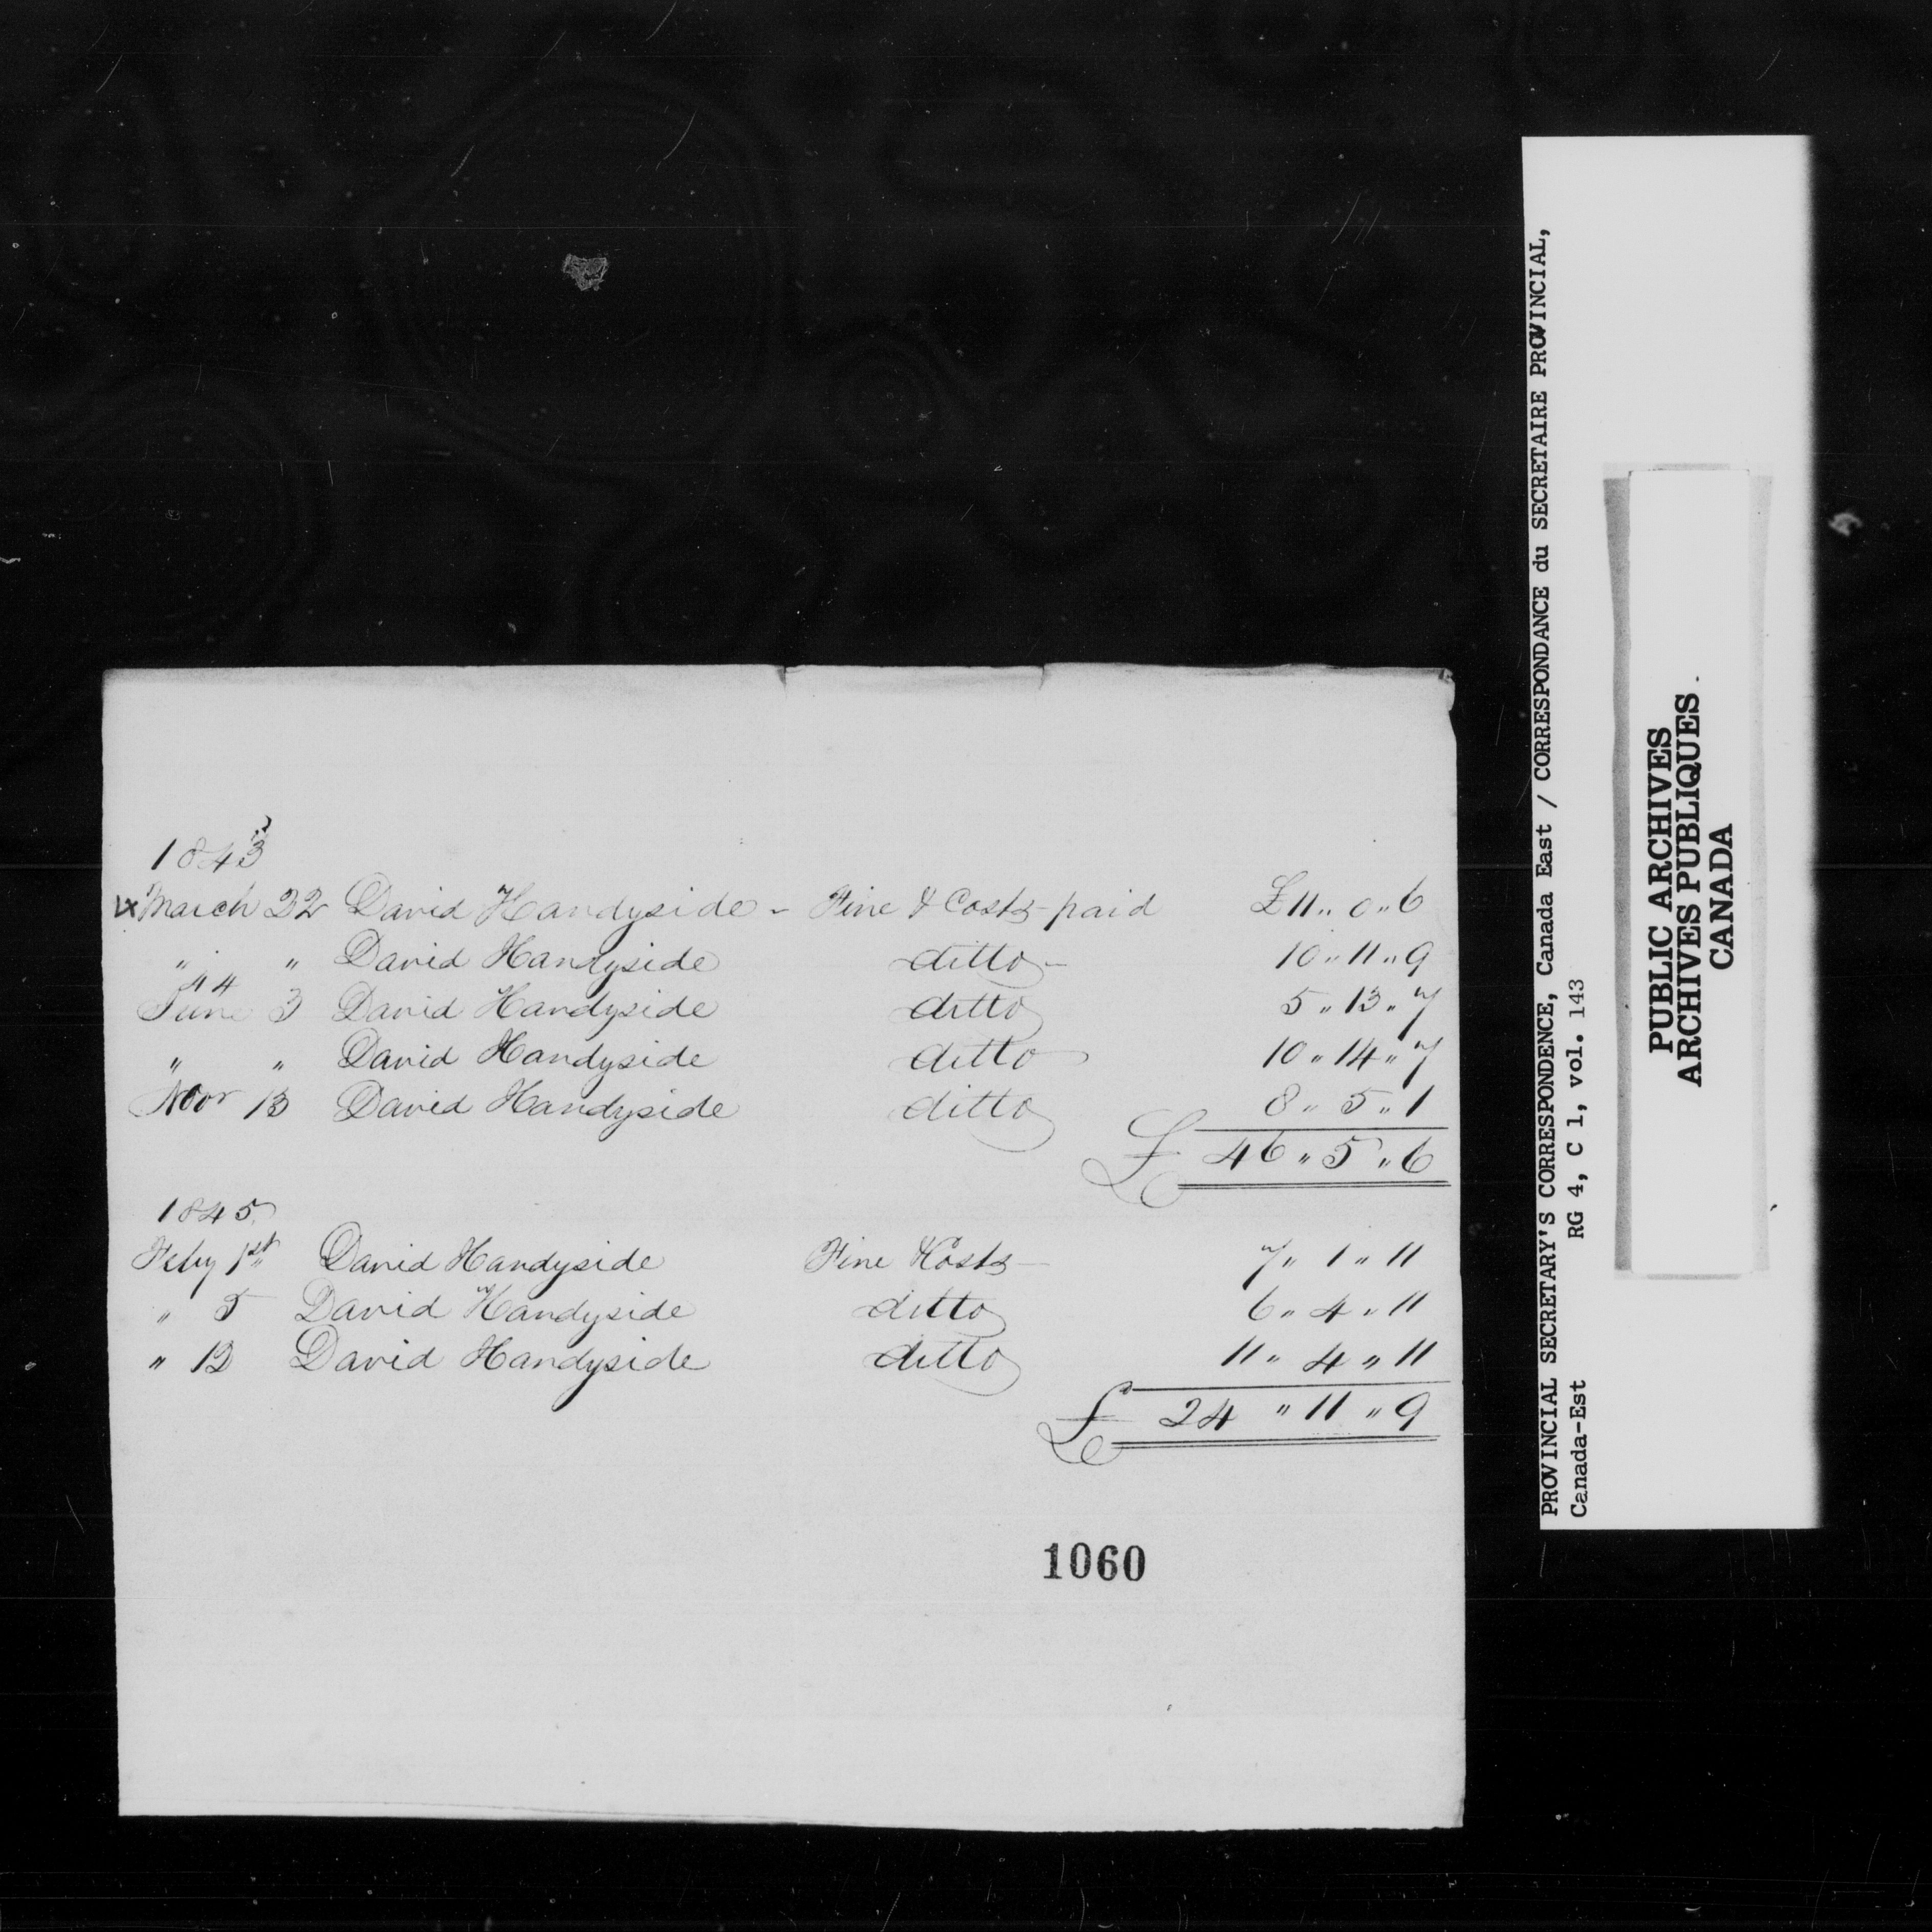 1843
March 22 David Handyside - Fine & Costs paid £11 " 0 " 6
" " David Handyside ditto - 10 " 11 " 9
44
June 3 David Handyside ditto 5 " 13 " 7
" " David Handyside ditto 10 " 14 " 7
Novr 13 David Handyside ditto 8 " 5 " 1
£ 46 " 5 " 6
1845
Feby 1st David Handyside Fine & Costs - 7 " 1 " 11
" 5 David Handyside ditto 6 " 4 " 11
" 12 David Handyside ditto 11 " 4 " 11
£ 24 " 11 " 9
1060
PROVINCIAL SECRETARY'S CORRESPONDENCE, Canada East / CORRESPONDANCE du SECRETAIRE PROVINCIAL,
Canada-Est RG 4, C 1, vol. 143
PUBLIC ARCHIVES
ARCHIVES PUBLIQUES
CANADA